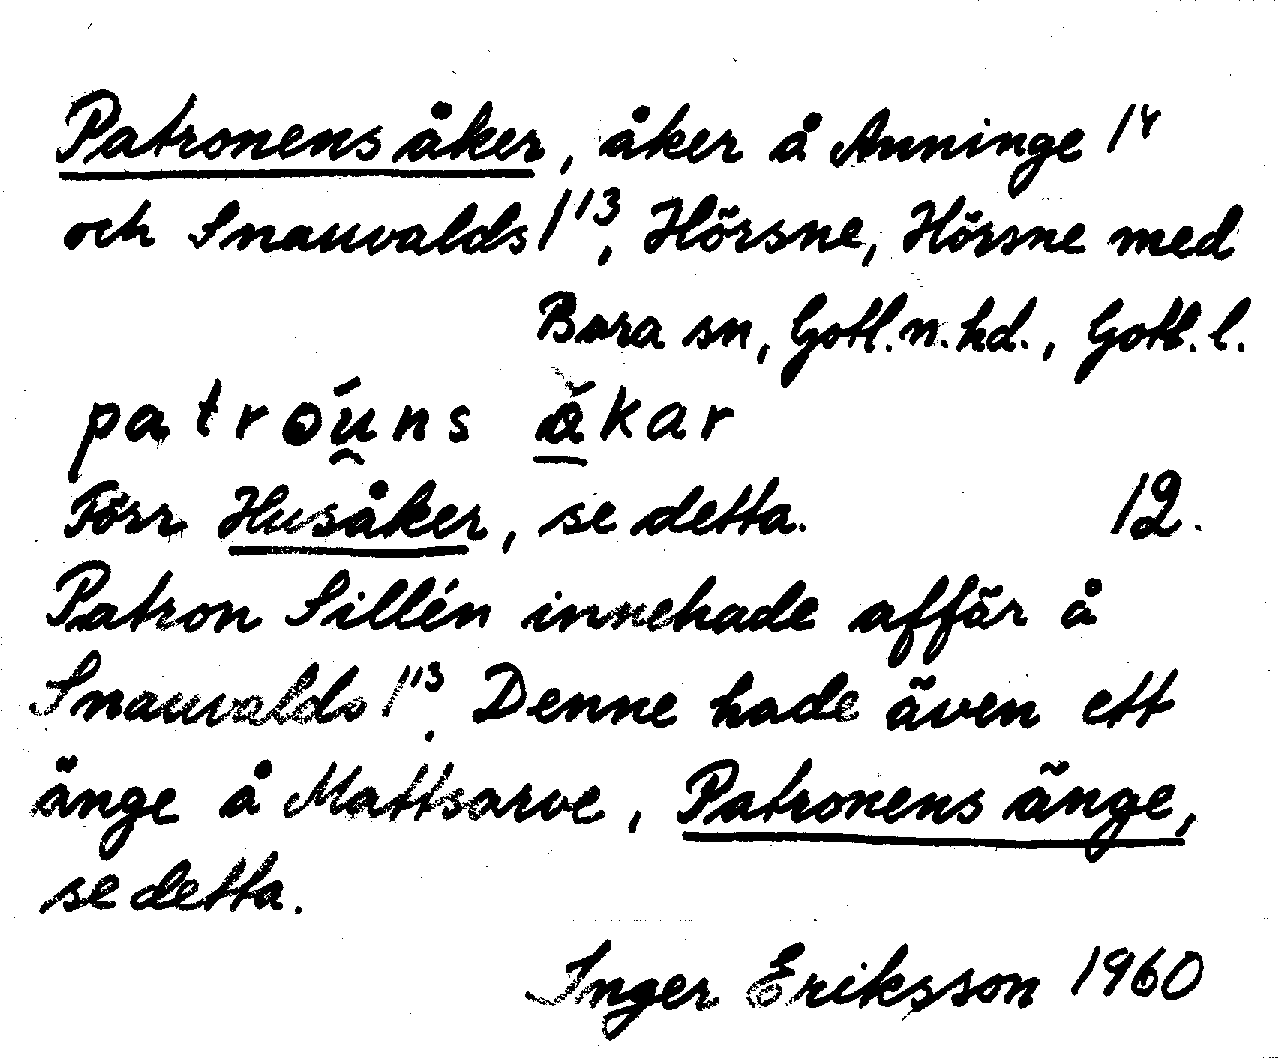 Patronens åker, åker å Anninge 1⁴
och Snauvalds 1¹³, Hörsne, Hörsne med
Bara sn, Gotl. n. hd., Gotl. l.
patróú̯ns ǻ̲kar
Förr Husåker, se detta. 12.
Patron Sillén innehade affär å
Snauvalds 1¹³. Denne hade även ett
änge å Mattsarve, Patronens änge,
se detta.
Inger Eriksson 1960